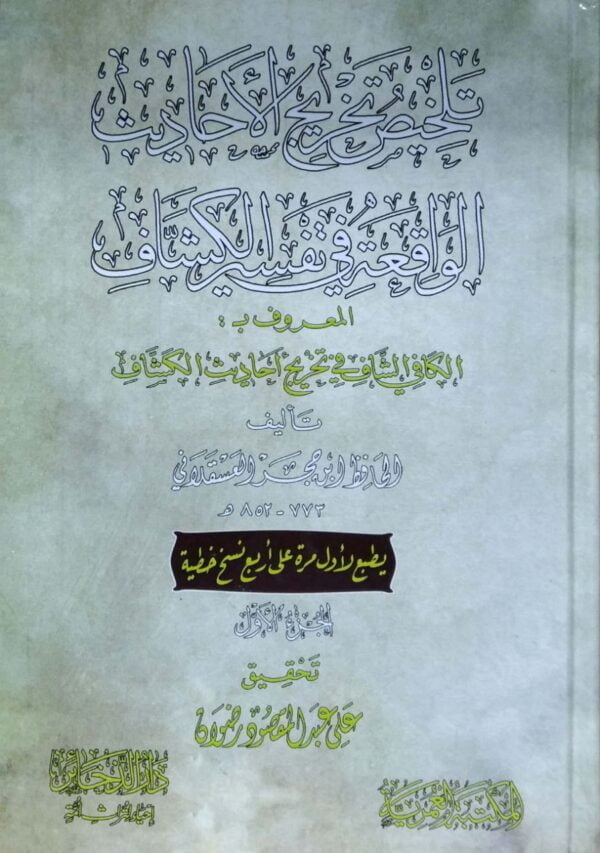 تلخيص تخريج الأحاديث
الواقعة في تفسير الكشاف
المعروف بـ :
الكافي الشاف في تخريج أحاديث الكشاف
تأليف
الحافظ ابن حجر العسقلاني
٧٧٣ - ٨٥٢ هـ
يطبع لأول مرة على أربع نسخ خطية
الجزء الأول
تحقيق
علي عبد المقصود رضوان
المكتبة العمرية
دار الذخائر